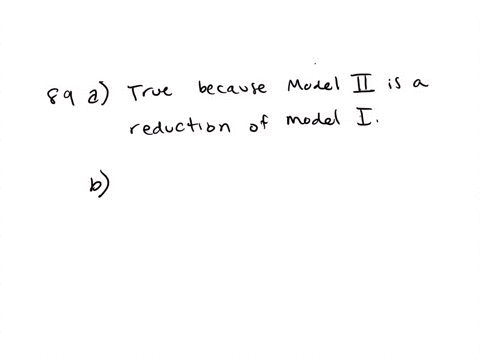 89 a) True because Model II is a
reduction of model I.
b)